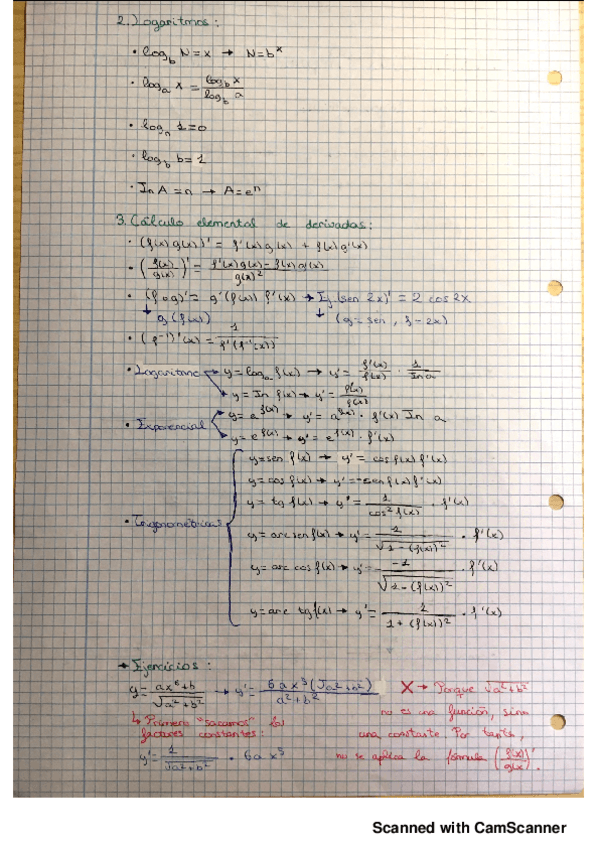 2.) Logaritmos:
• log_b N = x → N = b^x
• log_a x = log_b x / log_b a
• log_n 1 = 0
• log_b b = 1
• In A = n → A = e^n
3. Cálculo elemental de derivadas:
• (f(x) g(x))' = f'(x) g(x) + f(x) g'(x)
• (f(x)/g(x))' = f'(x) g(x) - f(x) g'(x) / g(x)^2
• (f o g)' = g'(f(x)) f'(x) → Ej. (sen 2x)' = 2 cos 2x
g(f(x)) (g = sen, f = 2x)
• (f^-1)'(x) = 1 / f'(f^-1(x))
• Logaritmo → y = log_a f(x) → y' = f'(x)/f(x) · 1/In a
→ y = In f(x) → y' = f'(x)/f(x)
• Exponencial → y = a^f(x) → y' = a^f(x) · f'(x) In a
→ y = e^f(x) → y' = e^f(x) · f'(x)
• Trigonométricas
y = sen f(x) → y' = cos f(x) f'(x)
y = cos f(x) → y' = -sen f(x) f'(x)
y = tg f(x) → y' = 1/cos² f(x) · f'(x)
y = arc sen f(x) → y' = 1/√(1 - (f(x))²) · f'(x)
y = arc cos f(x) → y' = -1/√(1 - (f(x))²) · f'(x)
y = arc tg f(x) → y' = 1/(1 + (f(x))²) · f'(x)
→ Ejercicios:
y = ax⁶+b / √a²+b² → y' = 6ax⁵(√a²+b²) / a²+b² X → Porque √a²+b²
no es una función, sino
↳ Primero "sacamos" los
factores constantes: una constante. Por tanto,
y' = 1/√a²+b² · 6ax⁵ no se aplica la fórmula (f(x)/g(x))'.
Scanned with CamScanner